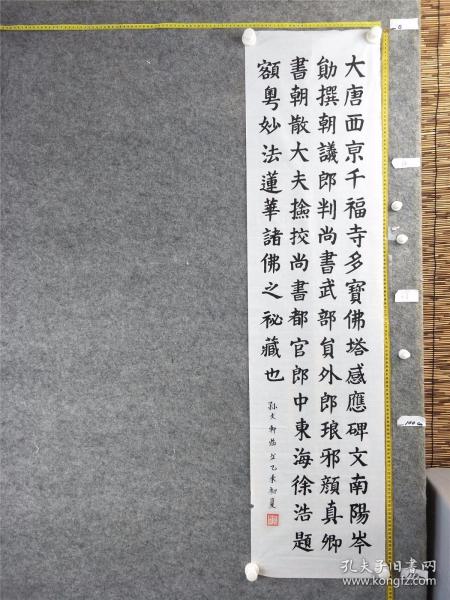 大唐西京千福寺多寶佛塔感應碑文南陽岑
勛撰朝議郎判尚書武部員外郎琅邪顏真卿
書朝散大夫撿挍尚書都官郎中東海徐浩題
額粵妙法蓮華諸佛之祕藏也
孙文軒臨 於乙未初夏
孔夫子旧書网
www.kongfz.com